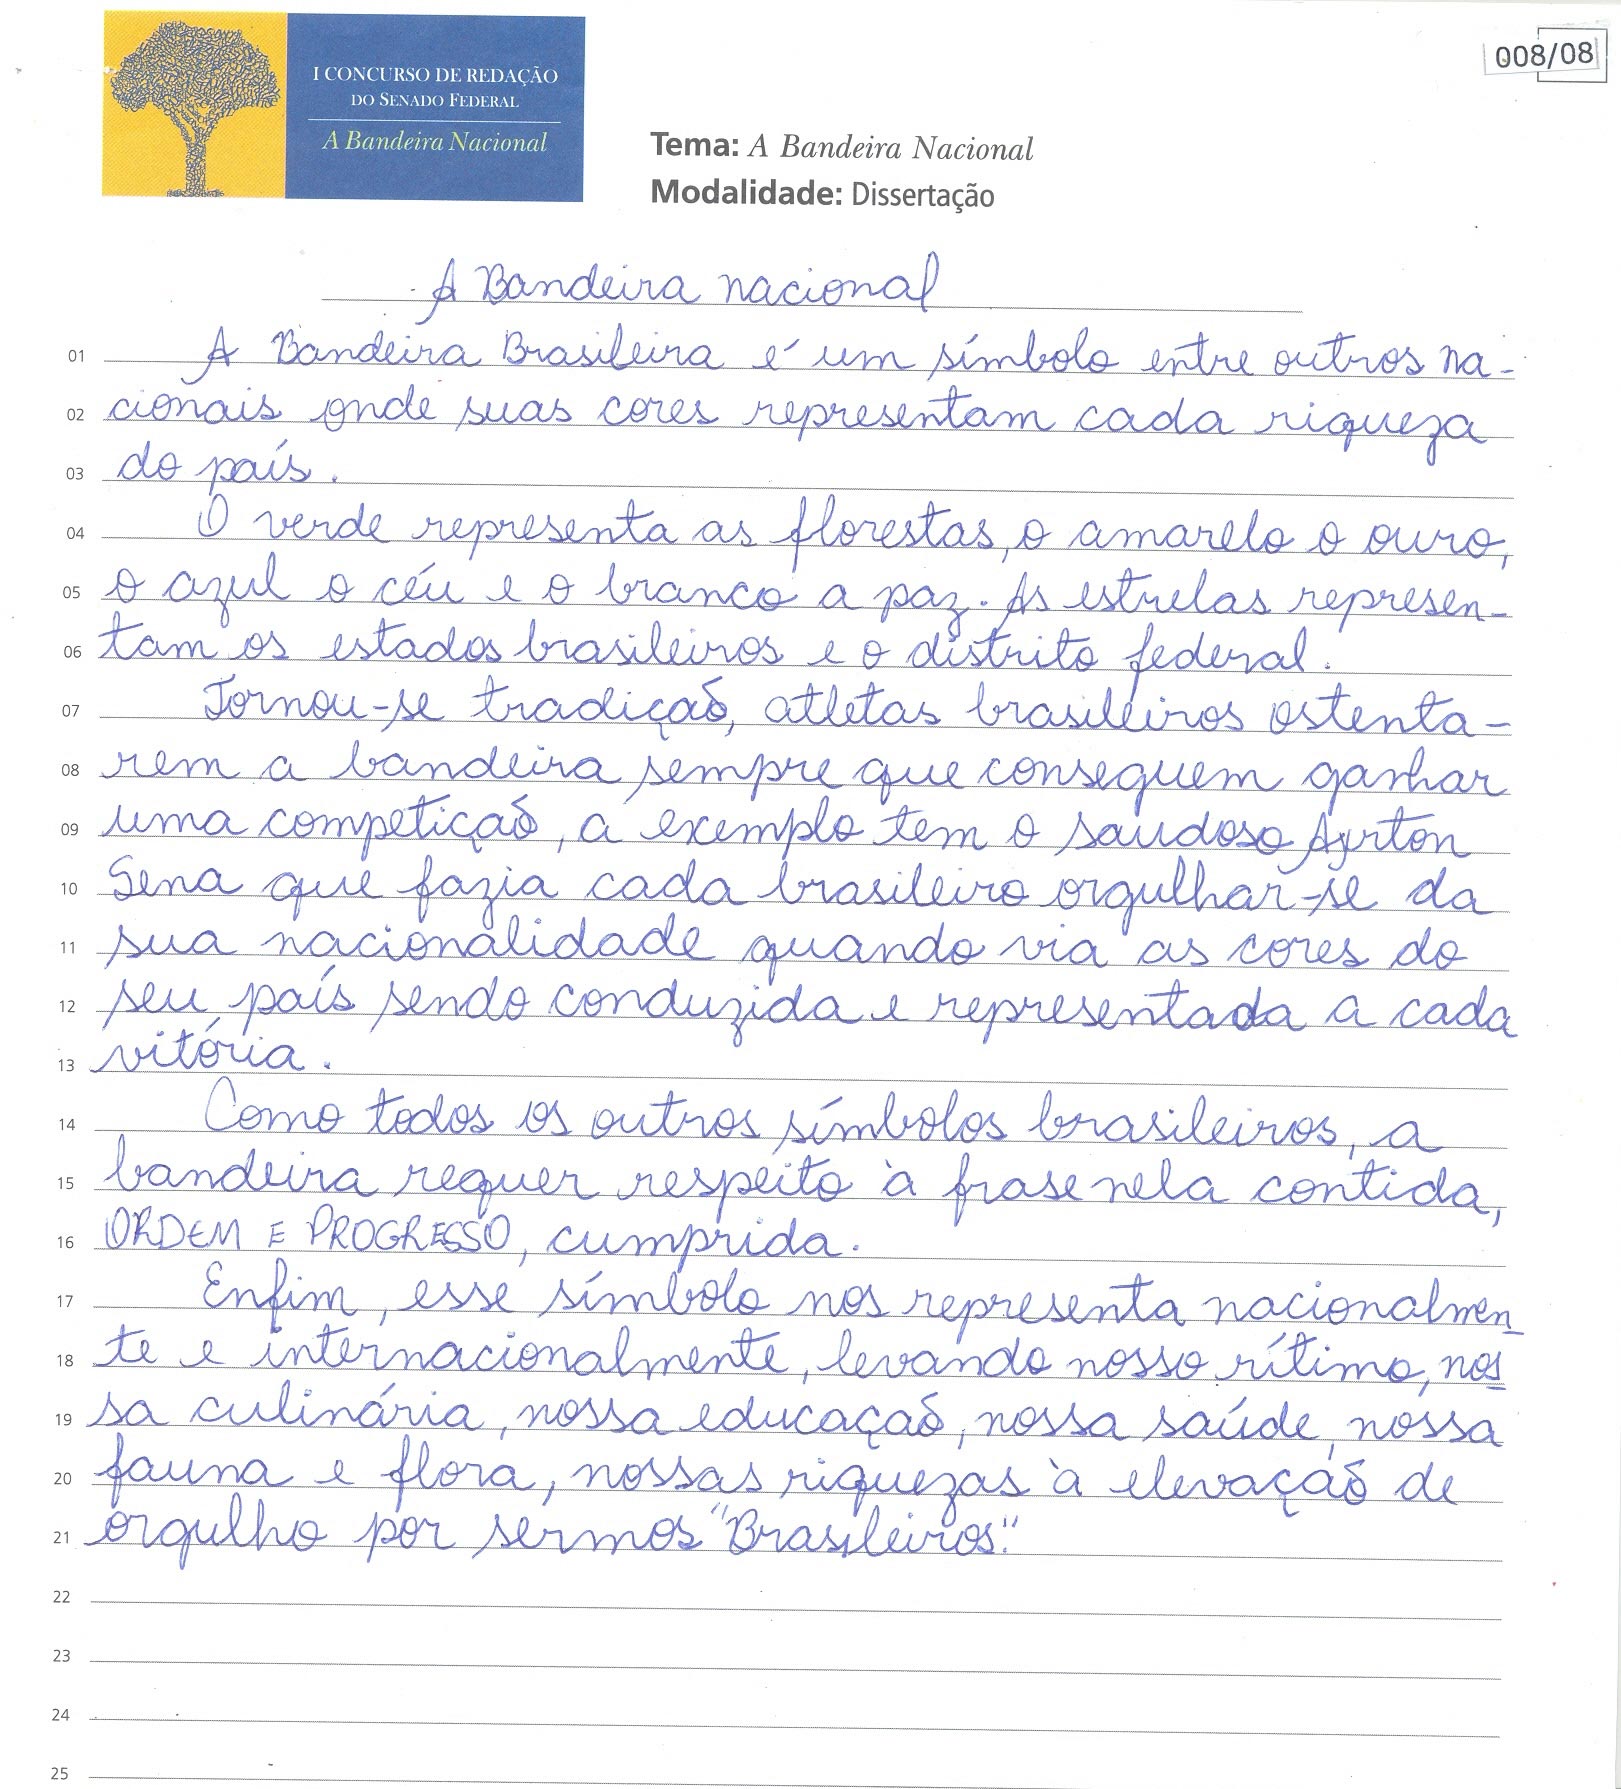 008/08
I CONCURSO DE REDAÇÃO
DO SENADO FEDERAL
A Bandeira Nacional
Tema: A Bandeira Nacional
Modalidade: Dissertação
A Bandeira nacional
01 A Bandeira Brasileira é um símbolo entre outros na-
02 cionais onde suas cores representam cada riqueza
03 do país.
04 O verde representa as florestas, o amarelo o ouro,
05 o azul o céu e o branco a paz. As estrelas represen-
06 tam os estados brasileiros e o distrito federal.
07 Tornou-se tradição, atletas brasileiros ostenta-
08 rem a bandeira sempre que conseguem ganhar
09 uma competição, a exemplo tem o saudoso Ayrton
10 Sena que fazia cada brasileiro orgulhar-se da
11 sua nacionalidade quando via as cores do
12 seu país sendo conduzida e representada a cada
13 vitória.
14 Como todos os outros símbolos brasileiros, a
15 bandeira requer respeito à frase nela contida,
16 ORDEM E PROGRESSO, cumprida.
17 Enfim, esse símbolo nos representa nacionalmen_
18 te e internacionalmente, levando nosso rítimo, nos_
19 sa culinária, nossa educação, nossa saúde, nossa
20 fauna e flora, nossas riquezas à elevação de
21 orgulho por sermos "Brasileiros."
22
23
24
25